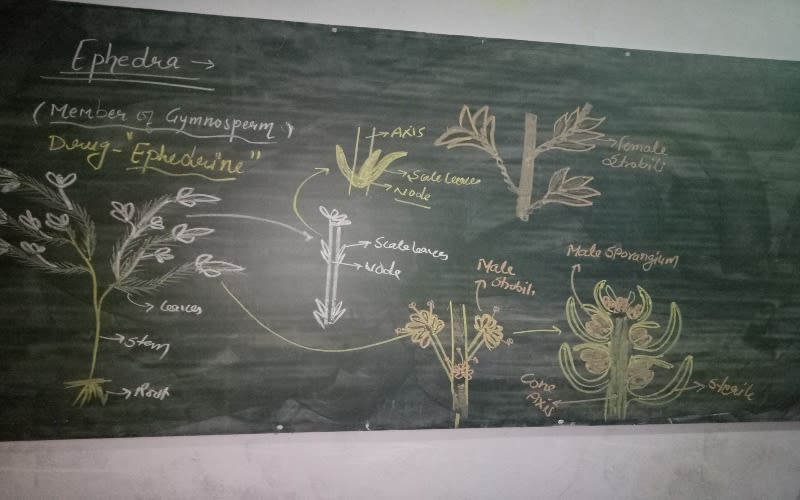 Ephedra →
(Member of Gymnosperm)
Drug - "Ephedrine"
Axis
Scale leaves
Node
Female
Strobili
Scale leaves
Node
Male
Strobili
Male Sporangium
Leaves
Stem
Root
Cone
Axis
Sterile